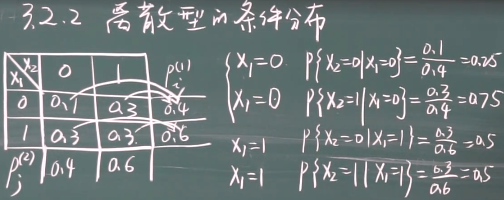 3.2.2 离散型的条件分布
X₁\X₂ 0 1 Pᵢ⁽¹⁾
0 0.1 0.3 0.4
1 0.3 0.3 0.6
Pⱼ⁽²⁾ 0.4 0.6
{ X₁=0 P{X₂=0|X₁=0}=0.1/0.4=0.25
X₁=0 P{X₂=1|X₁=0}=0.3/0.4=0.75
X₁=1 P{X₂=0|X₁=1}=0.3/0.6=0.5
X₁=1 P{X₂=1|X₁=1}=0.3/0.6=0.5